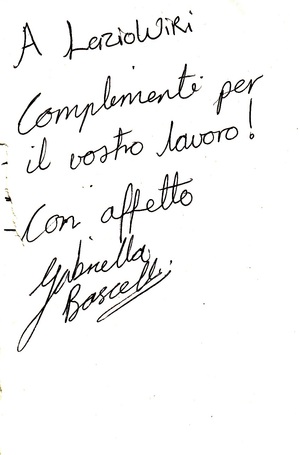 A LazioWiki
Complimenti per
il vostro lavoro!
Con affetto
Gabriella
Bascelli